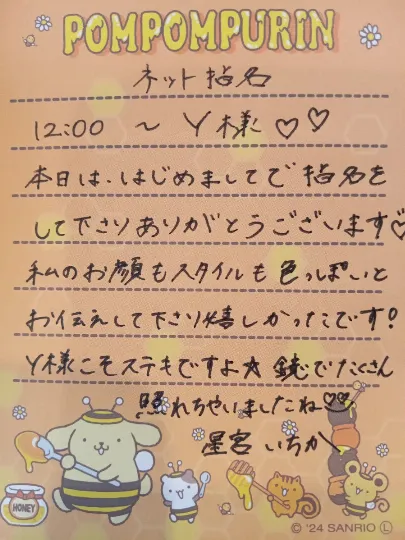 POMPOMPURIN
ネット指名
12:00 ～ Y様♡♡
本日は、はじめましてで 指名を
して下さりありがとうございます♡
私のお顔もスタイルも 色っぽいと
お伝えして下さり嬉しかったです!
Y様こそステキですよ★ 鏡でたくさん
照れちゃいましたね♡♡
星宮 いちか
HONEY
© '24 SANRIO Ⓛ